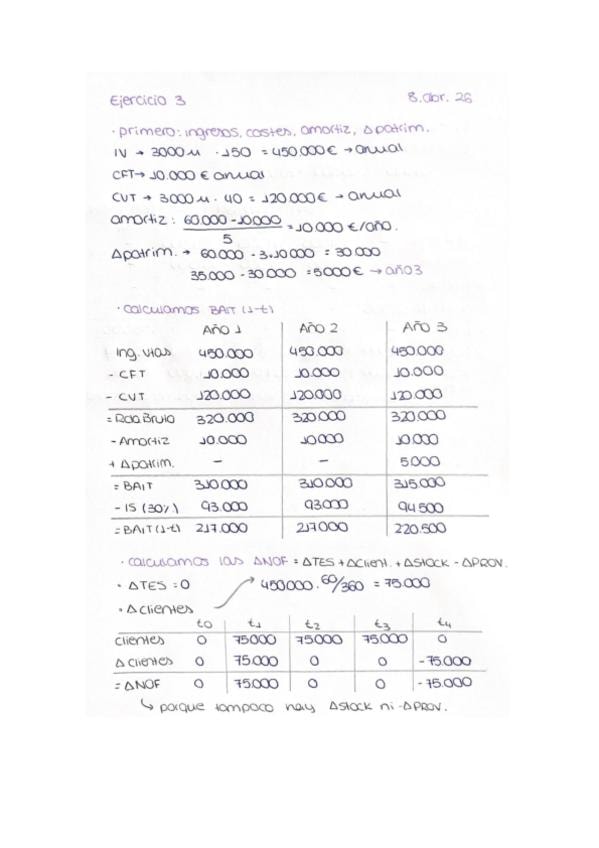 Ejercicio 3 8.abr.26
· primero: ingresos, costes, amortiz, Δpatrim.
IV → 3000u · 150 = 450.000€ → anual
CFT → 10.000 € anual
CUT → 3000u · 40 = 120.000€ → anual
amortiz: 60.000 - 10.000 / 5 = 10.000 €/año.
Δpatrim. → 60.000 - 3·10.000 = 30.000
35.000 - 30.000 = 5000€ → año 3
· calculamos BAIT (1-t)
AÑO 1 AÑO 2 AÑO 3
+ Ing. vtas 450.000 450.000 450.000
- CFT 10.000 10.000 10.000
- CVT 120.000 120.000 120.000
= Rdo Bruto 320.000 320.000 320.000
- Amortiz 10.000 10000 10000
+ Δpatrim. - - 5000
= BAIT 310000 310.000 315000
- IS (30%) 93.000 93000 94500
= BAIT(1-t) 217.000 217000 220.500
· calculamos las ΔNOF = ΔTES + Δclient. + ΔSTOCK - ΔPROV.
· ΔTES = 0 450000 · 60/360 = 75.000
· Δclientes
t0 t1 t2 t3 t4
clientes 0 75000 75000 75000 0
Δclientes 0 75.000 0 0 -75.000
= ΔNOF 0 75.000 0 0 -75.000
↳ porque tampoco hay ΔSTOCK ni -ΔPROV.